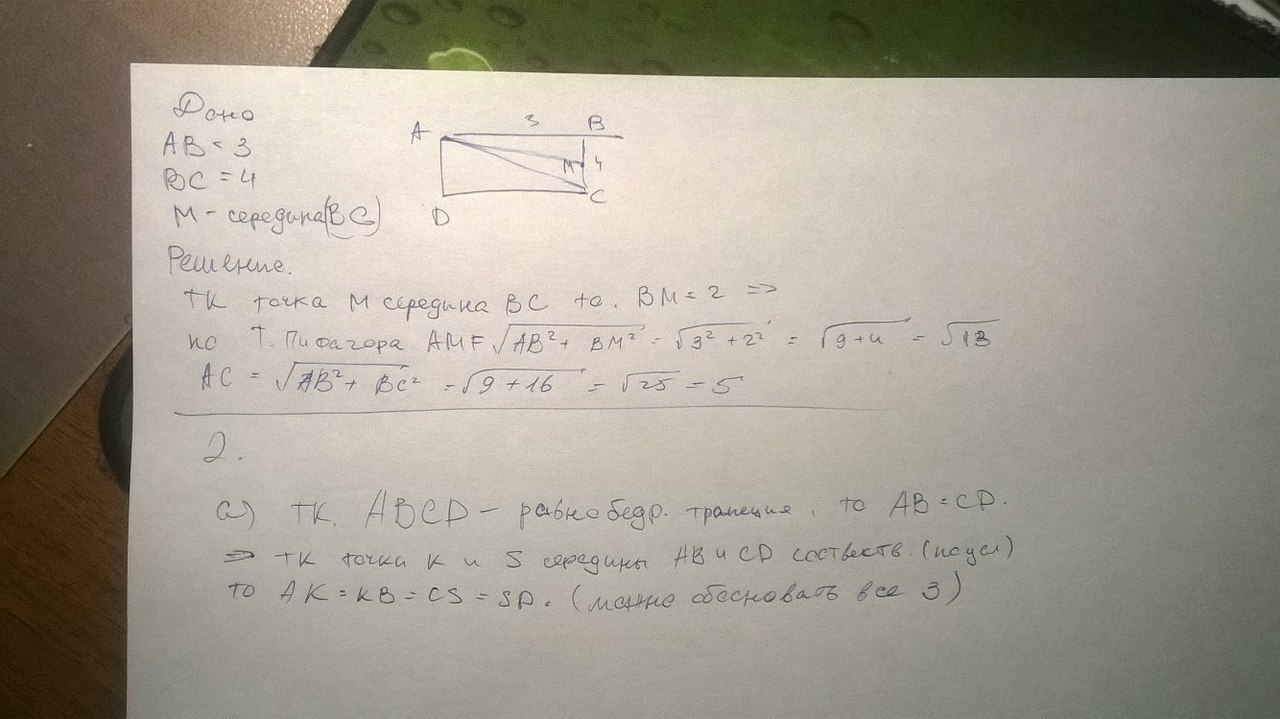 Дано
AB = 3
BC = 4
M - середина(BC)
A 3 B
M 4
D C
Решение.
тк точка M середина BC то. BM = 2 =>
по т Пифагора AM = √AB² + BM² = √3² + 2² = √9+4 = √13
AC = √AB² + BC² = √9 + 16 = √25 = 5
2.
а) тк. ABCD - равнобедр. трапеция, то AB = CD.
=> тк точки K и S середины AB и CD соотвеств. (по усл)
то AK = KB = CS = SD. (можно обосновать все 3)